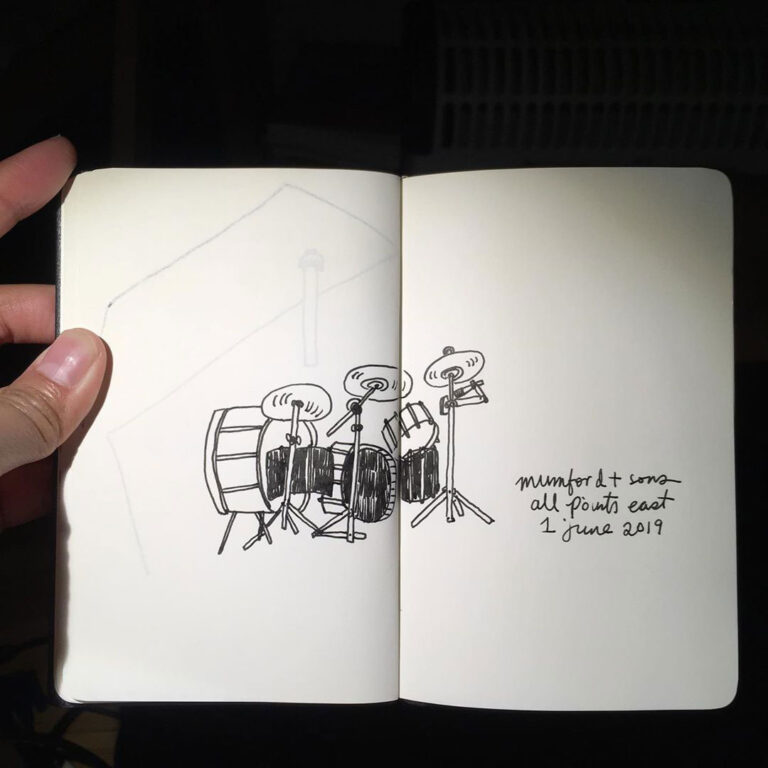 mumford + sons
all points east
1 june 2019